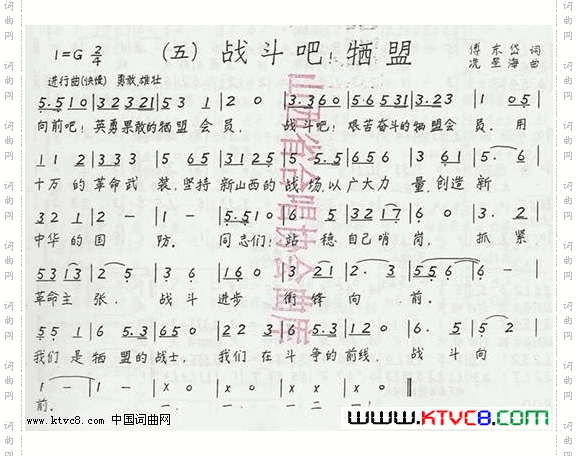 1=G 2/4 (五)战斗吧!牺盟 傅东岱词
冼星海曲
进行曲(快慢) 勇敢、雄壮
5.5 1 0 | 3 2 3 2 1 | 5 3 1 | 2 0 | 3.3 6 0 | 5.6 5 3 1 | 3.2 3 | 1 0 5 |
向前吧!英勇果敢的牺盟会员, 战斗吧!艰苦奋斗的牺盟会员。用
1 1 2 | 3 3 3 | 5 6 5 | 3 1 2 5 | 5 5.5 | 6 5 6 | 3 6 1 | 5. 6 |
十万的革命武装,坚持新山西的战场,以广大力量,创造新
3 2 1 | 2 - | 1 - | 5.5 1 0 | 6 5 | 3 2 1 7 | 6 0 | 3. 2 |
中华的国防。同志们!站稳自己哨岗,抓紧
5 3 1 3 | 2 5 | 3 6 | 1 6 0 | 3 2 1 | 2. 3 | 5 5 6 | 6 - |
革命主张,战斗进步衝锋向前。
5 5 1 | 6 5.3 | 6 5 0 | 2 2 3 | 6 5.3 | 1 2 0 | 6. 5 | 5 2 |
我们是牺盟的战士,我们在斗争的前线,战斗向
1 - | 1 - | x 0 | x 0 | x x | x 0 ‖
前。一 一 二 一!
山西省合唱协会曲库
www.ktvc8.com 中国词曲网
www.KTVC8.com
词曲网